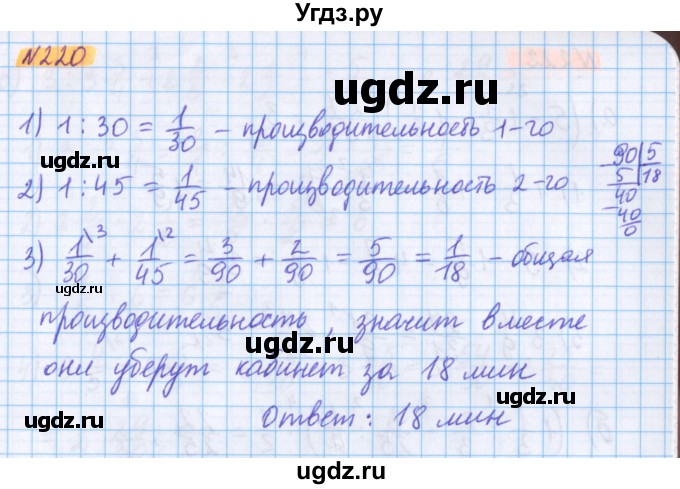 Угдз.ру
N220
ugdz.ru
1) 1 : 30 = 1/30 – производительность 1-го
ugdz.ru
2) 1 : 45 = 1/45 – производительность 2-го
90|5
5 18
40
–40
0
3) 1\3/30 + 1\2/45 = 3/90 + 2/90 = 5/90 = 1/18 – общая
ugdz.ru
производительность, значит вместе
ugdz.ru
они уберут кабинет за 18 мин
ugdz.ru
Ответ: 18 мин
ugdz.ru
ugdz.ru